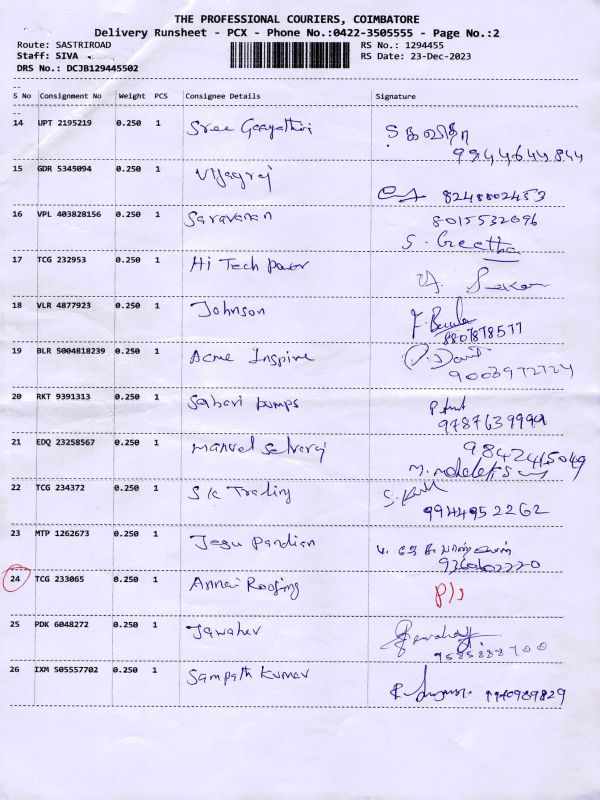 THE PROFESSIONAL COURIERS, COIMBATORE
Delivery Runsheet - PCX - Phone No.:0422-3505555 - Page No.:2
Route: SASTRIROAD RS No.: 1294455
Staff: SIVA RS Date: 23-Dec-2023
DRS No.: DCJB129445502
--
S No Consignment No Weight PCS Consignee Details Signature
--
14 UPT 2195219 0.250 1 Sree Gaayathiri S கவிதா
9944644844
15 GDR 5345094 0.250 1 Vijayraj
8248802453
16 VPL 403828156 0.250 1 Saravanan 8015532096
S. Geetha
17 TCG 232953 0.250 1 Hi Tech Power
Sekar
18 VLR 4877923 0.250 1 Johnson
8807878577
19 BLR 5004818239 0.250 1 Acme Inspire
9003972724
20 RKT 9391313 0.250 1 Sabari Pumps
9787639999
21 EDQ 23258567 0.250 1 Manvel Selvaraj 9842415049
22 TCG 234372 0.250 1 S K Trading
9944952262
23 MTP 1262673 0.250 1 Jegu Pandian
24 TCG 233065 0.250 1 Annai Roofing
25 PDK 6048272 0.250 1 Jawaher
9585888700
26 IXM 505557702 0.250 1 Sampath Kumar 9940989829